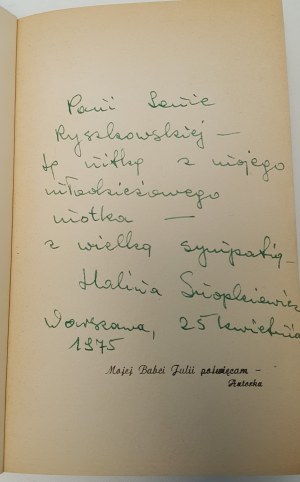 Pani Lenie
Ryszkowskiej —
tę nitkę z mojego
młodzieżowego
motka —
z wielką sympatią —
Halina Snopkiewicz
Warszawa, 25 kwietnia
1975
Mojej Babci Julii poświęcam —
Autorka